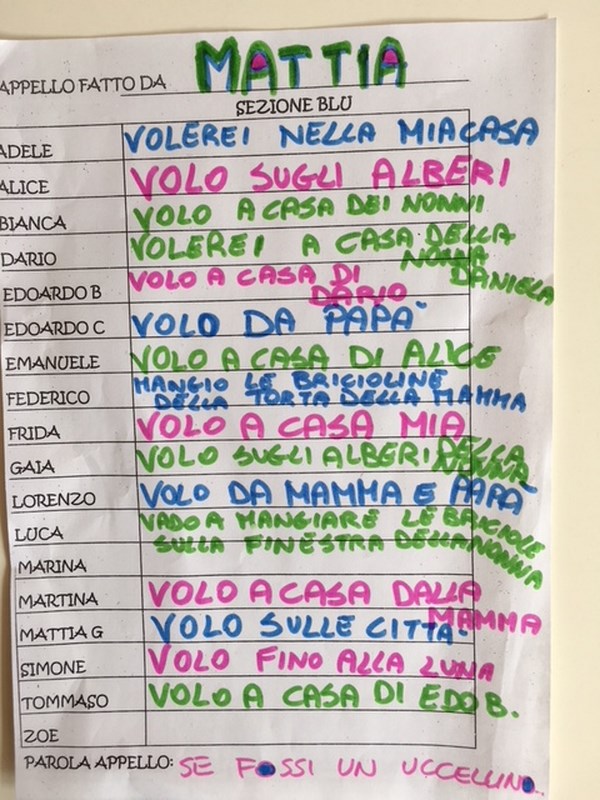 APPELLO FATTO DA MATTIA
SEZIONE BLU
ADELE VOLEREI NELLA MIA CASA
ALICE VOLO SUGLI ALBERI
BIANCA VOLO A CASA DEI NONNI
DARIO VOLEREI A CASA DELLA
NONNA DANIELA
EDOARDO B VOLO A CASA DI
DARIO
EDOARDO C VOLO DA PAPA'
EMANUELE VOLO A CASA DI ALICE
FEDERICO MANGIO LE BRICIOLINE
DELLA TORTA DELLA MAMMA
FRIDA VOLO A CASA MIA
GAIA VOLO SUGLI ALBERI DELLA
NONNA
LORENZO VOLO DA MAMMA E PAPA'
LUCA VADO A MANGIARE LE BRICIOLE
SULLA FINESTRA DELLA NONNA
MARINA
MARTINA VOLO A CASA DALLA
MAMMA
MATTIA G VOLO SULLE CITTA'
SIMONE VOLO FINO ALLA LUNA
TOMMASO VOLO A CASA DI EDO B.
ZOE
PAROLA APPELLO: SE FOSSI UN UCCELLINO...